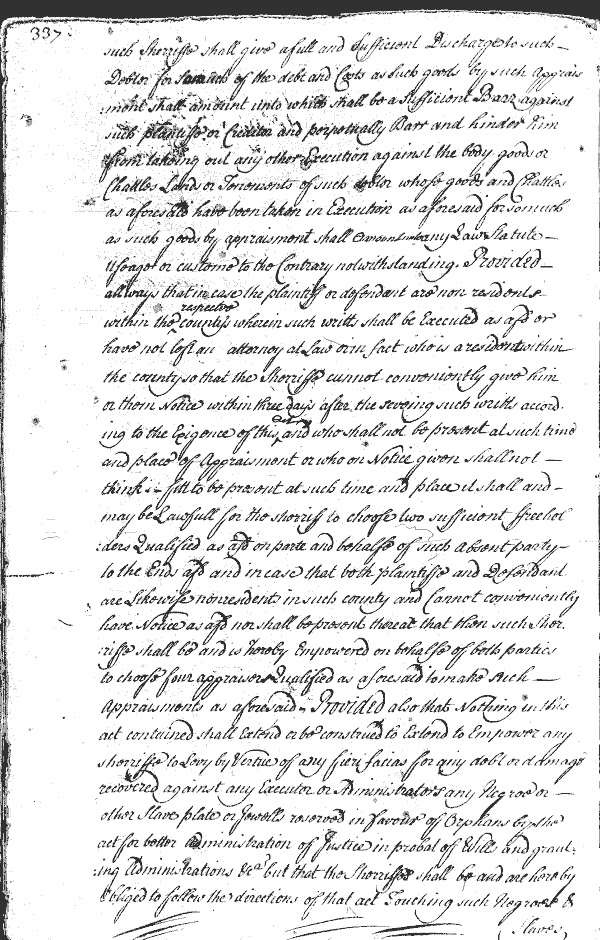 337
such Sherriffe shall give a full and Sufficient Discharge to such
Debtor for so much of the debt and Costs as such goods by such Apprais
ment shall amount unto which shall be a sufficient Barr against
such plantiff or Creditor and perpetually Barr and hinder him
from takeing out any other Execution against the body goods or
Chattles Lands or Tenements of such debtor whose goods and Chattles
as aforesaid have been taken in Execution as aforesaid for so much
as such goods by appraisment shall amount unto any Law Statute
Useage or custome to the Contrary notwithstanding. Provided
allways that in case the plaintiff or defendant are non residents
respective
within the county wherein such writts shall be Executed as afsd or
have not left an attorney at Law or in fact who is a resident within
the county so that the Sherriffe cannot conveniently give him
or them Notice within three days after the serveing such writts accord
ing to the Exigence of this and who shall not be present at such time
act
and place of Appraisment or who on Notice given shall not
think fitt to be present at such time and place it shall and
may be Lawfull for the sherriff to choose two sufficient ffreehol
:ders Qualified as afsd on parte and behalfe of such absent party
to the Ends afsd and in case that both plaintiffe and Defendant
are Likewise nonresidents in such county and Cannot conveniently
have Notice as afsd nor shall be present thereat that then such Sher
:riffe shall be and is hereby Empowered on behalfe of both parties
to choose four appraisers Qualified as aforesaid to make such
Appraisments as aforesaid Provided also that Nothing in this
act contained shall Extend or be construed to Extend to Empower any
sherriffe to Levy by Vertue of any fieri facias for any debt or damage
recovered against any Executor or Administrators any Negroe or
other Slave plate or Jewells reserved in favour of Orphans by the
act for better administration of Justice in probat of Wills and grant:
:ing Administrations &ca but that the Sherriffes shall be and are hereby
obliged to follow the directions of that act Touching such Negroes &
Slaves,